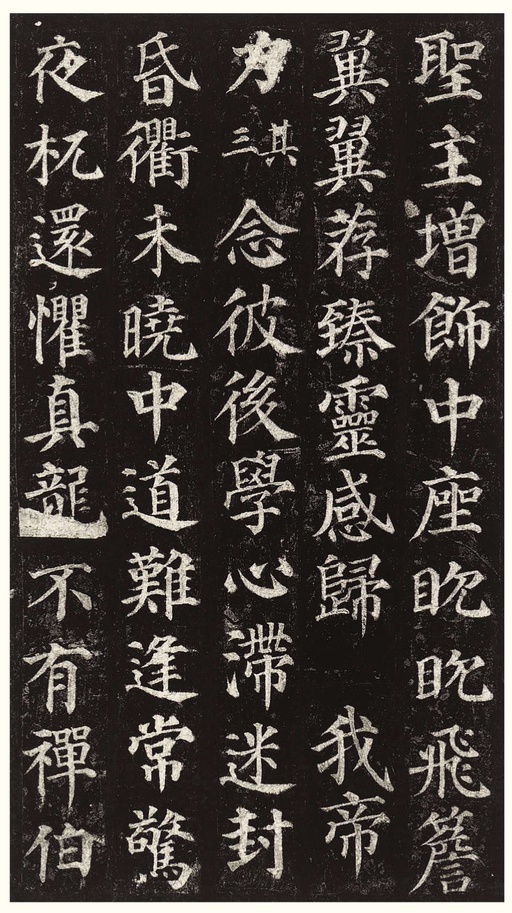 聖主增飾中座眈眈飛簷
翼翼荐臻靈感歸 我帝
力其三念彼後學心滯迷封
昏衢未曉中道難逢常驚
夜杌還懼真龍不有禪伯